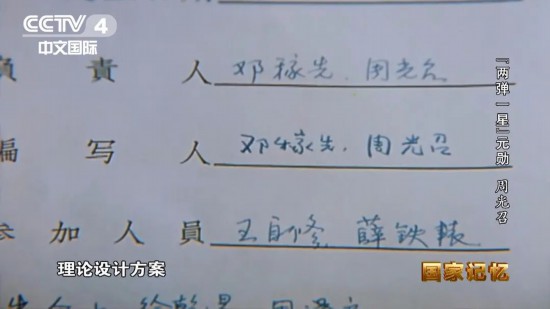 CCTV 4
中文国际
负责人 邓稼先、周光召
编写人 邓稼先、周光召
参加人員 王自修 薛铁辕
「两弹一星」元勋 周光召
理论设计方案
国家记忆